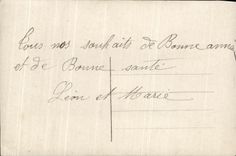 Tous nos souhaits de Bonne anné
et de Bonne santé
Léon et Marie